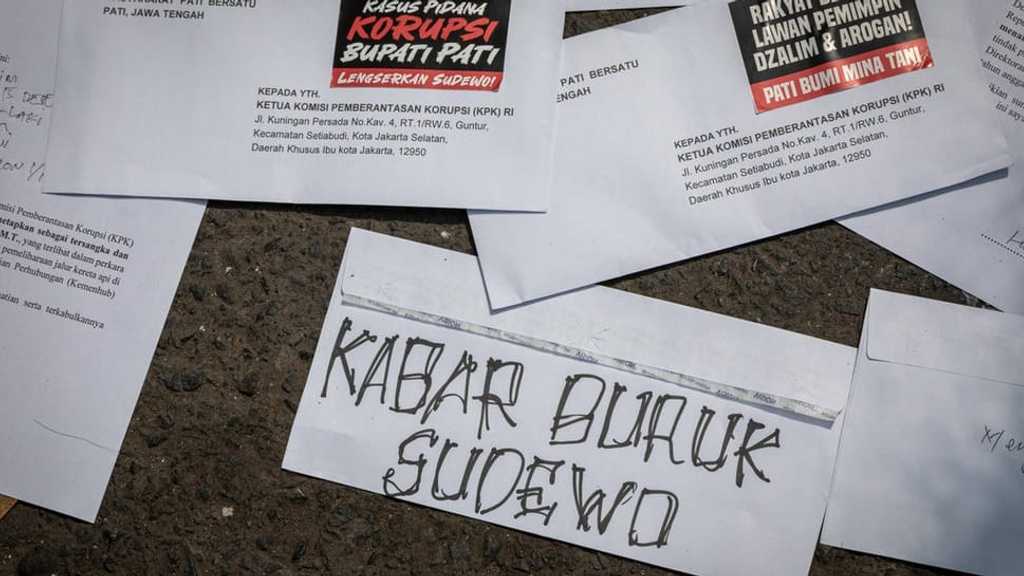 PATI BERSATU
PATI, JAWA TENGAH
KASUS PIDANA
KORUPSI
BUPATI PATI
LENGSERKAN SUDEWO!
KEPADA YTH.
KETUA KOMISI PEMBERANTASAN KORUPSI (KPK) RI
Jl. Kuningan Persada No.Kav. 4, RT.1/RW.6, Guntur,
Kecamatan Setiabudi, Kota Jakarta Selatan,
Daerah Khusus Ibu kota Jakarta, 12950
PATI BERSATU
RAKYAT
LAWAN PEMIMPIN
DZALIM & AROGAN!
PATI BUMI MINA TANI
KEPADA YTH.
KETUA KOMISI PEMBERANTASAN KORUPSI (KPK) RI
Jl. Kuningan Persada No.Kav. 4, RT.1/RW.6, Guntur,
Kecamatan Setiabudi, Kota Jakarta Selatan,
Daerah Khusus Ibu kota Jakarta, 12950
Pemberantasan Korupsi (KPK)
sebagai tersangka dan
M.T., yang terlibat dalam perkara
pemeliharaan jalur kereta api di
Perhubungan (Kemenhub)
serta terkabulkannya
KABAR BURUK
SUDEWO